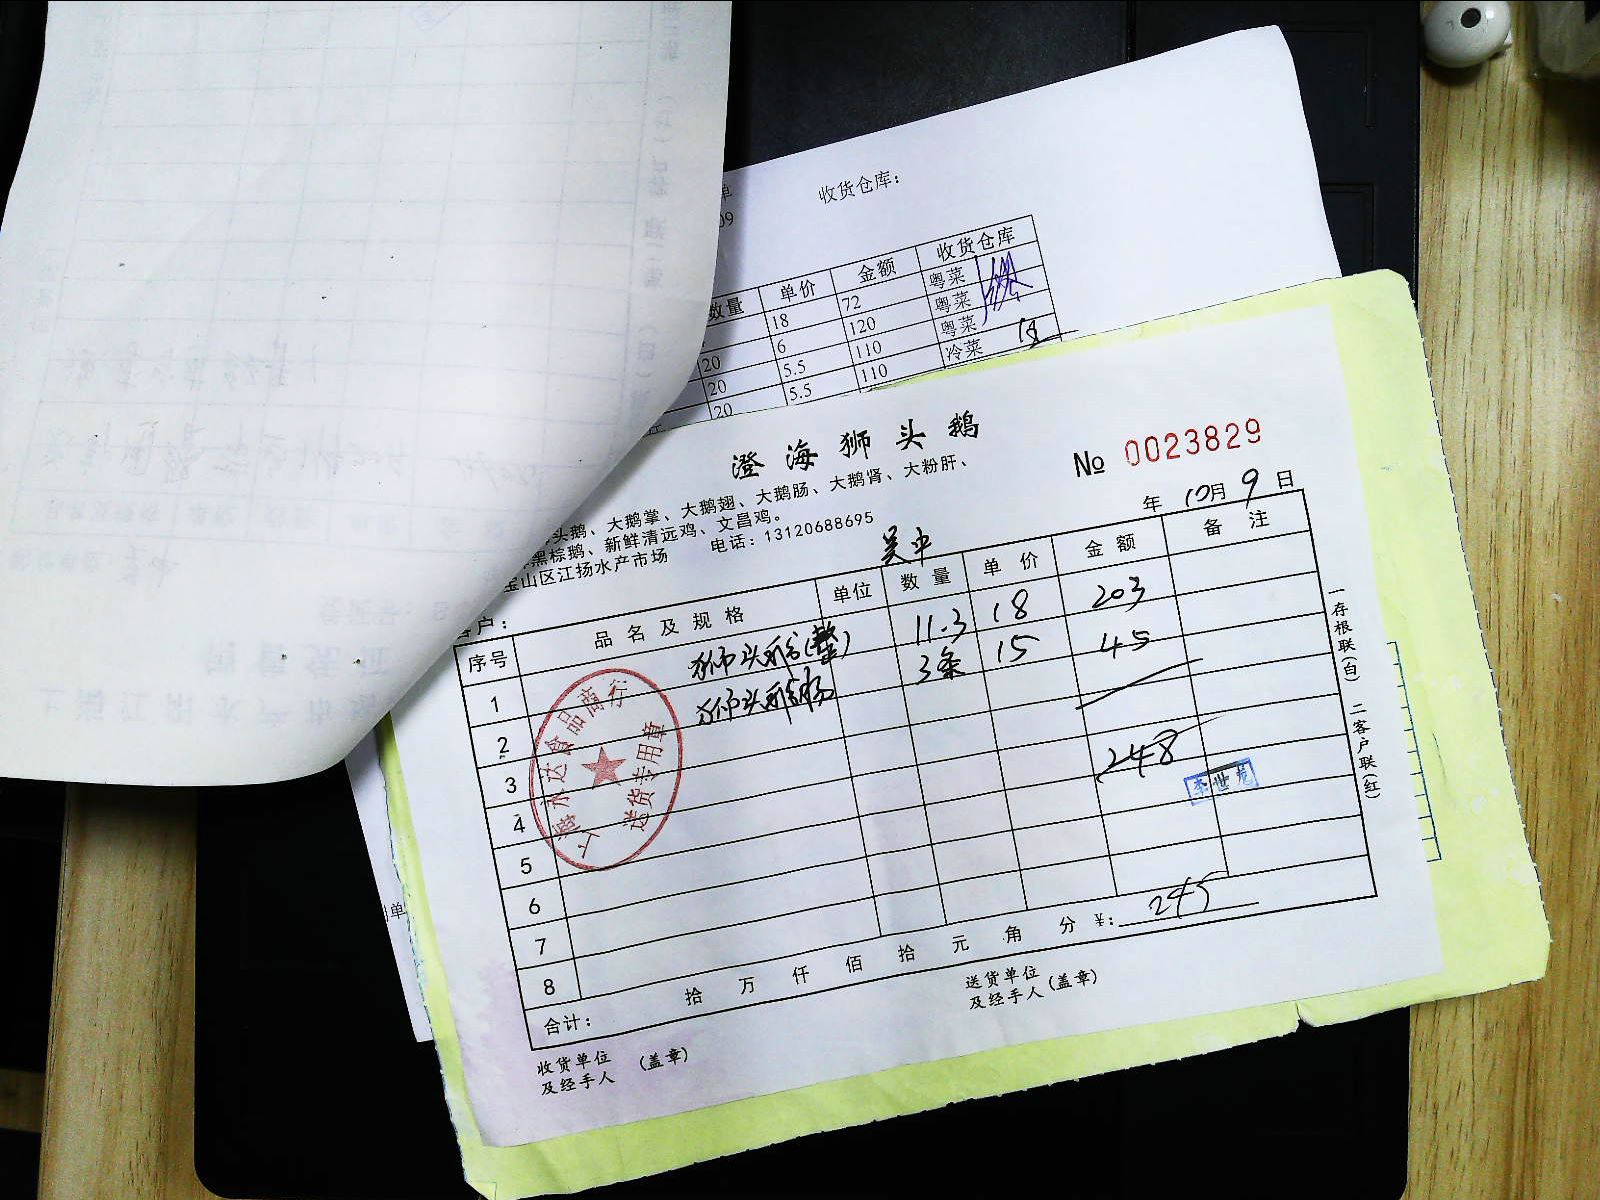 收货仓库：
09
数量 单价 金额 收货仓库
18 72 粤菜
20 6 120 粤菜
20 5.5 110 粤菜
20 5.5 110 冷菜
澄海狮头鹅
№ 0023829
头鹅、大鹅掌、大鹅翅、大鹅肠、大鹅肾、大粉肝、
黑棕鹅、新鲜清远鸡、文昌鸡。
宝山区江扬水产市场 电话：13120688695
年 10月 9 日
客户：
序号 品名及规格 单位 数量 单价 金额 备注
1 狮头鹅(整) 11.3 18 203
2 狮头鹅肠 3条 15 45
3
4 248
5
6
7
8
李世龙
上海 永达食品商行
送货专用章
合计： 拾 万 仟 佰 拾 元 角 分 ¥: 245
收货单位及经手人 (盖章)
送货单位及经手人 (盖章)
一存根联(白) 二客户联(红)